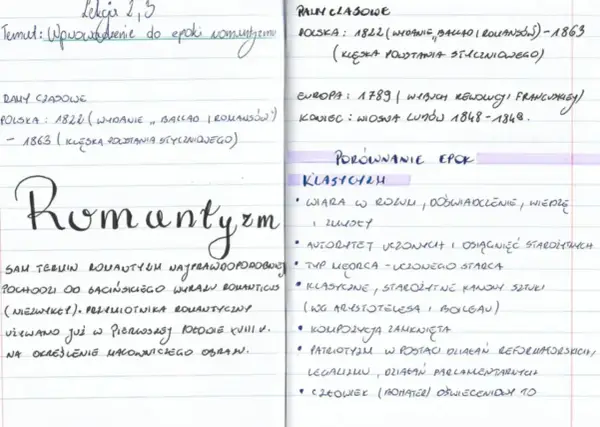 Lekcja 2,3
Temat: Wprowadzenie do epoki romantyzmu
RAMY CZASOWE
POLSKA: 1822 (WYDANIE „BALLAD I ROMANSÓW")
- 1863 (KLĘSKA POWSTANIA STYCZNIOWEGO)
Romantyzm
SAM TERMIN ROMANTYZM NAJPRAWDOPODOBNIEJ
POCHODZI OD ŁACIŃSKIEGO WYRAZU ROMANTICUS
(NIEZWYKŁY). PRZYMIOTNIKA ROMANTYCZNY
UŻYWANO JUŻ W PIERWSZEJ POŁOWIE XVIII W.
NA OKREŚLENIE MALOWNICZEGO OBRAZU.
RAMY CZASOWE
POLSKA: 1822 (WYDANIE „BALLAD I ROMANSÓW) - 1863
(KLĘSKA POWSTANIA STYCZNIOWEGO)
EUROPA: 1789 (WYBUCH REWOLUCJI FRANCUSKIEJ)
KONIEC: WIOSNA LUDÓW 1848 -
PORÓWNANIE EPOK
KLASYCYZM
• WIARA W ROZUM, DOŚWIADCZENIE, WIEDZĘ
I ZMYSŁY
• AUTORYTET UCZONYCH I OSIĄGNIĘĆ STAROŻYTNYCH
• TYP MĘDRCA - UCZONEGO STARCA
• KLASYCZNE, STAROŻYTNE KANONY SZTUKI
(WG ARYSTOTELESA I BOILEAU)
• KOMPOZYCJA ZAMKNIĘTA
• PATRIOTYZM W POSTACI DZIAŁAŃ REFORMATORSKICH,
LEGALIZMU, DZIAŁAŃ PARLAMENTARNYCH
• CZŁOWIEK (BOHATER) OŚWIECENIOWY TO